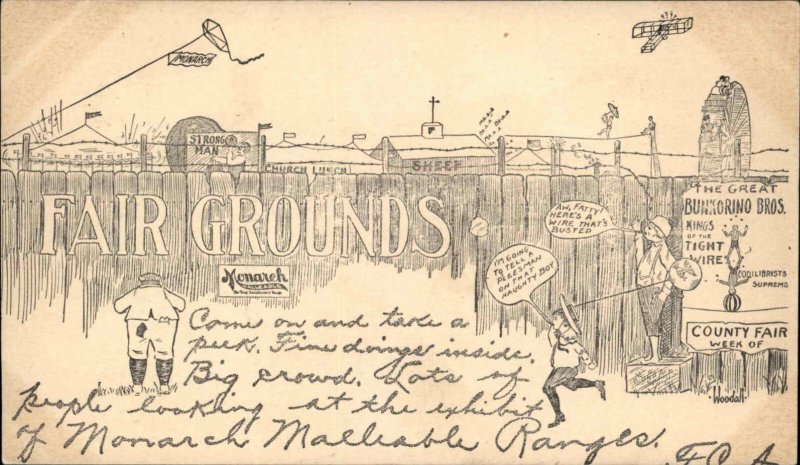 MONARCH
STRONG
MAN
CHURCH LUNCH
F
SHEEP
FAIR GROUNDS
THE GREAT
BUNKORINO BROS.
KINGS
OF THE
TIGHT
WIRE
EQUILIBRISTS
SUPREME
COUNTY FAIR
WEEK OF
AW, FATTY
HERE'S A
WIRE THAT'S
BUSTED
I'M GOING
TO TELL A
PLEESMAN
ON THAT
NAUGHTY BOY
Monarch
MALLEABLE
The "Stay Satisfactory" Range
Come on and take a
peek. Fine doings inside.
Big crowd. Lots of
people looking at the exhibit
of Monarch Malleable Ranges.
Woodall